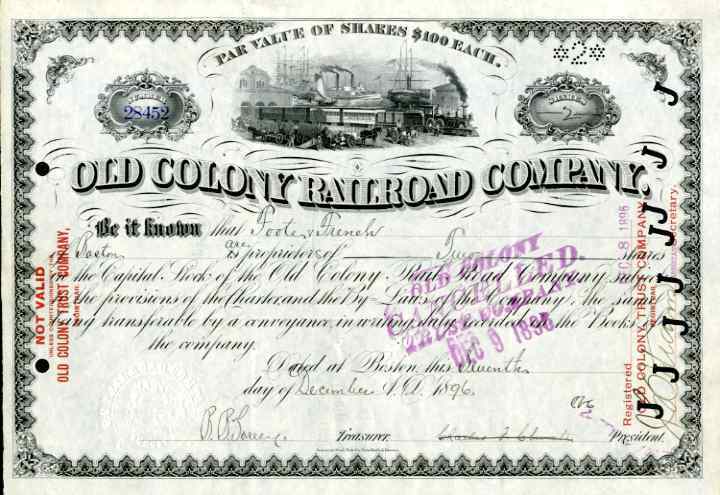 PAR VALUE OF SHARES $100 EACH.
*2*
28452
SHARES
2
OLD COLONY RAILROAD COMPANY.
Be it known that Foote & French
Boston are proprietors of Two shares
the Capital Stock of the Old Colony Rail Road Company
the provisions of the Charter and the By-Laws of the Company, the same
being transferable by a conveyance, in writing, duly recorded on the Books of
the company.
Dated at Boston, this
day of December A.D. 1896
Treasurer.
President.
NOT VALID
OLD COLONY TRUST COMPANY,
OLD COLONY
CANCELLED
TRUST COMPANY
DEC 9 1896
Registered
DEC 8 1896
OLD COLONY TRUST COMPANY
Secretary.